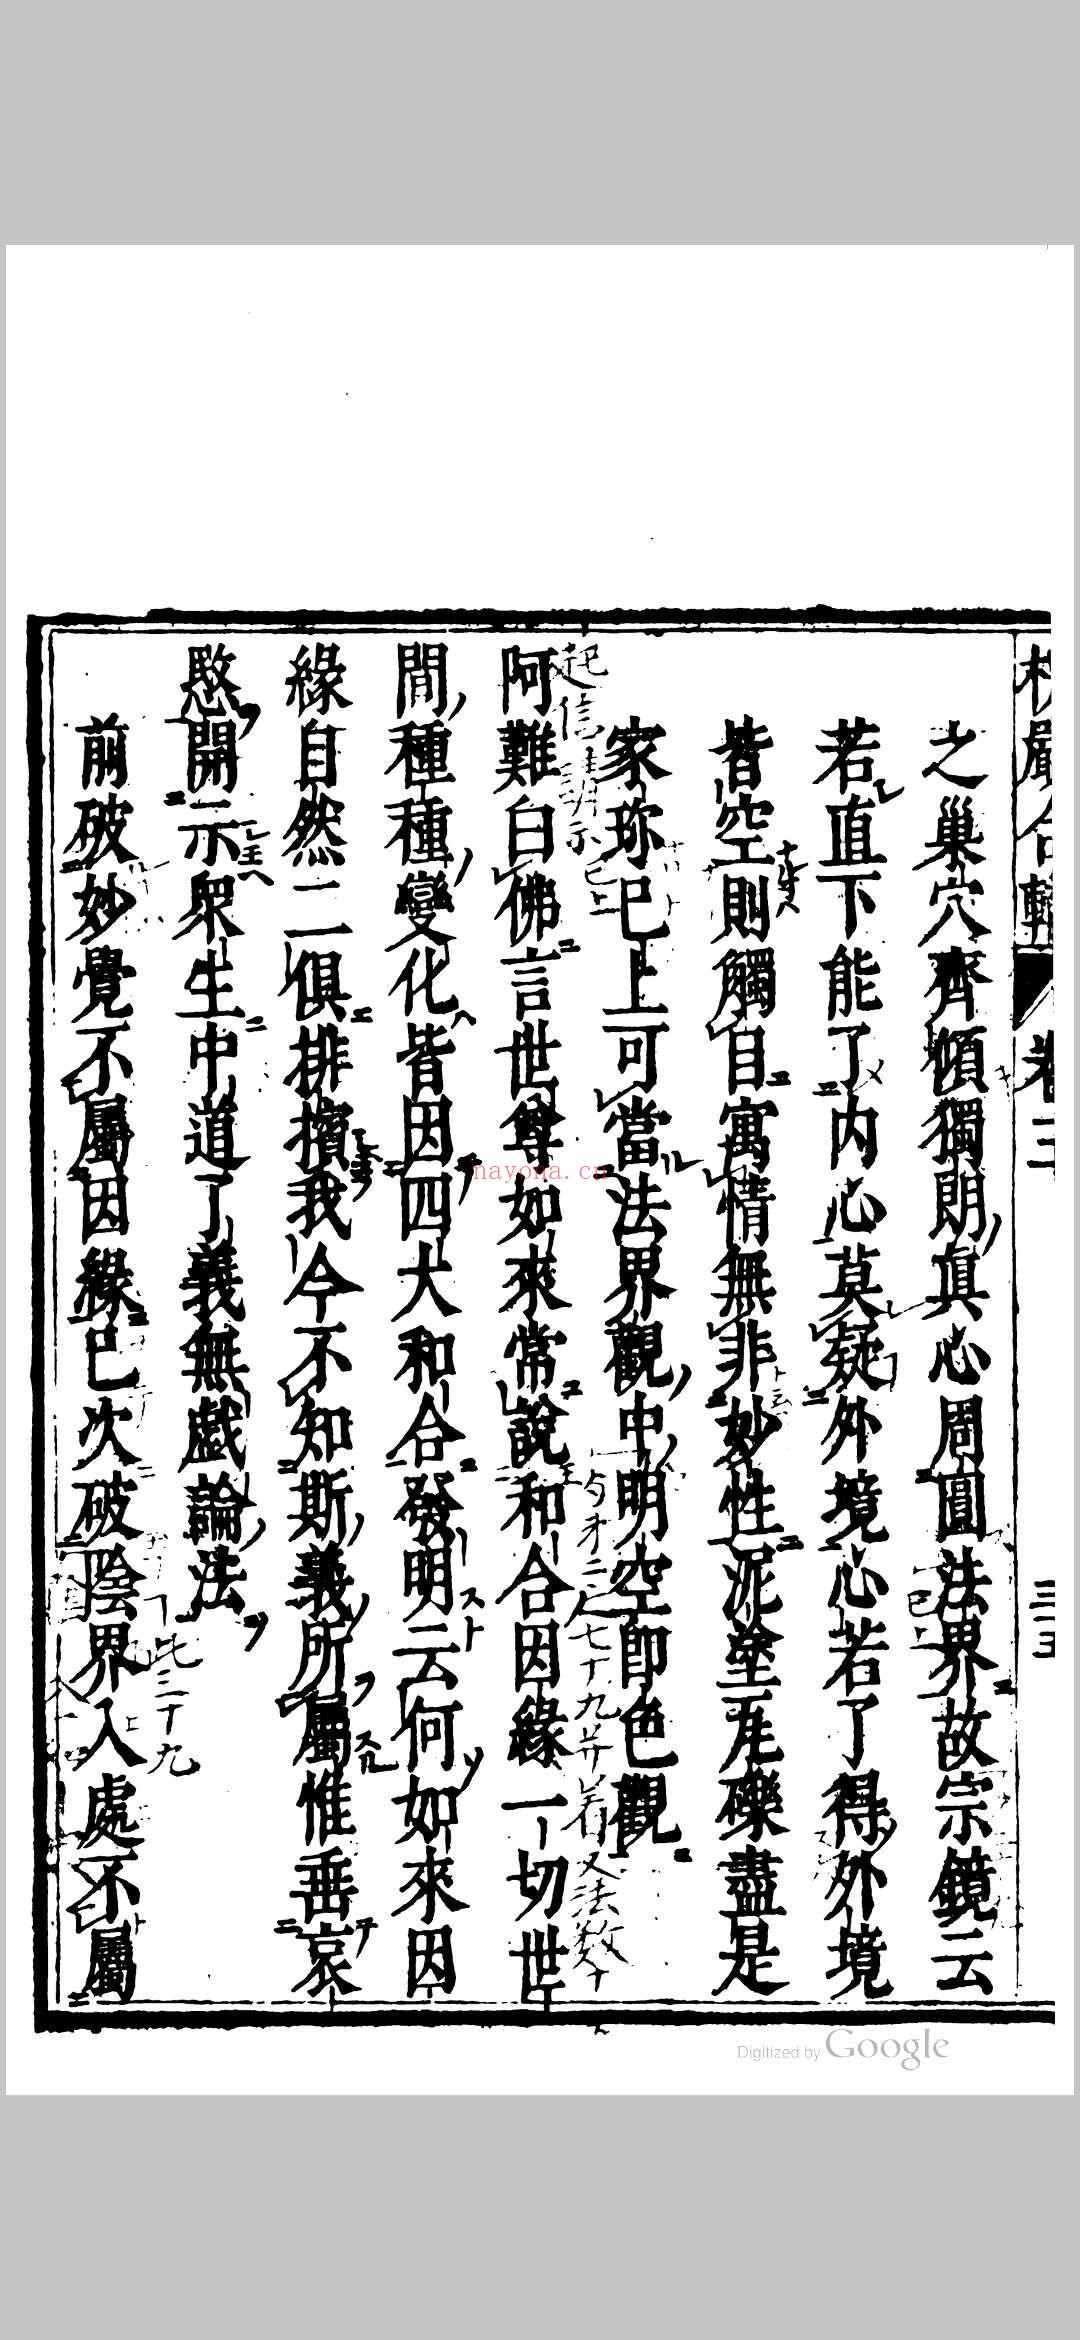 楞嚴合轍 卷三 三二五
之巢穴齊傾獨朗眞心周圓法界故宗鏡云
若直下能了内心莫疑外境心若了得外境
皆空則觸目寓情無非妙性泥塗瓦礫盡是
家珍巳上可當法界觀中明空即色觀
阿難白佛言世尊如來常說和合因緣一切世
間種種變化皆因四大和合發明云何如來因
緣自然二俱排擯我今不知斯義所屬惟垂哀
愍開示眾生中道了義無戲論法
前破妙覺不屬因緣巳次破陰界入處不屬
nayona.cn
Digitized by Google